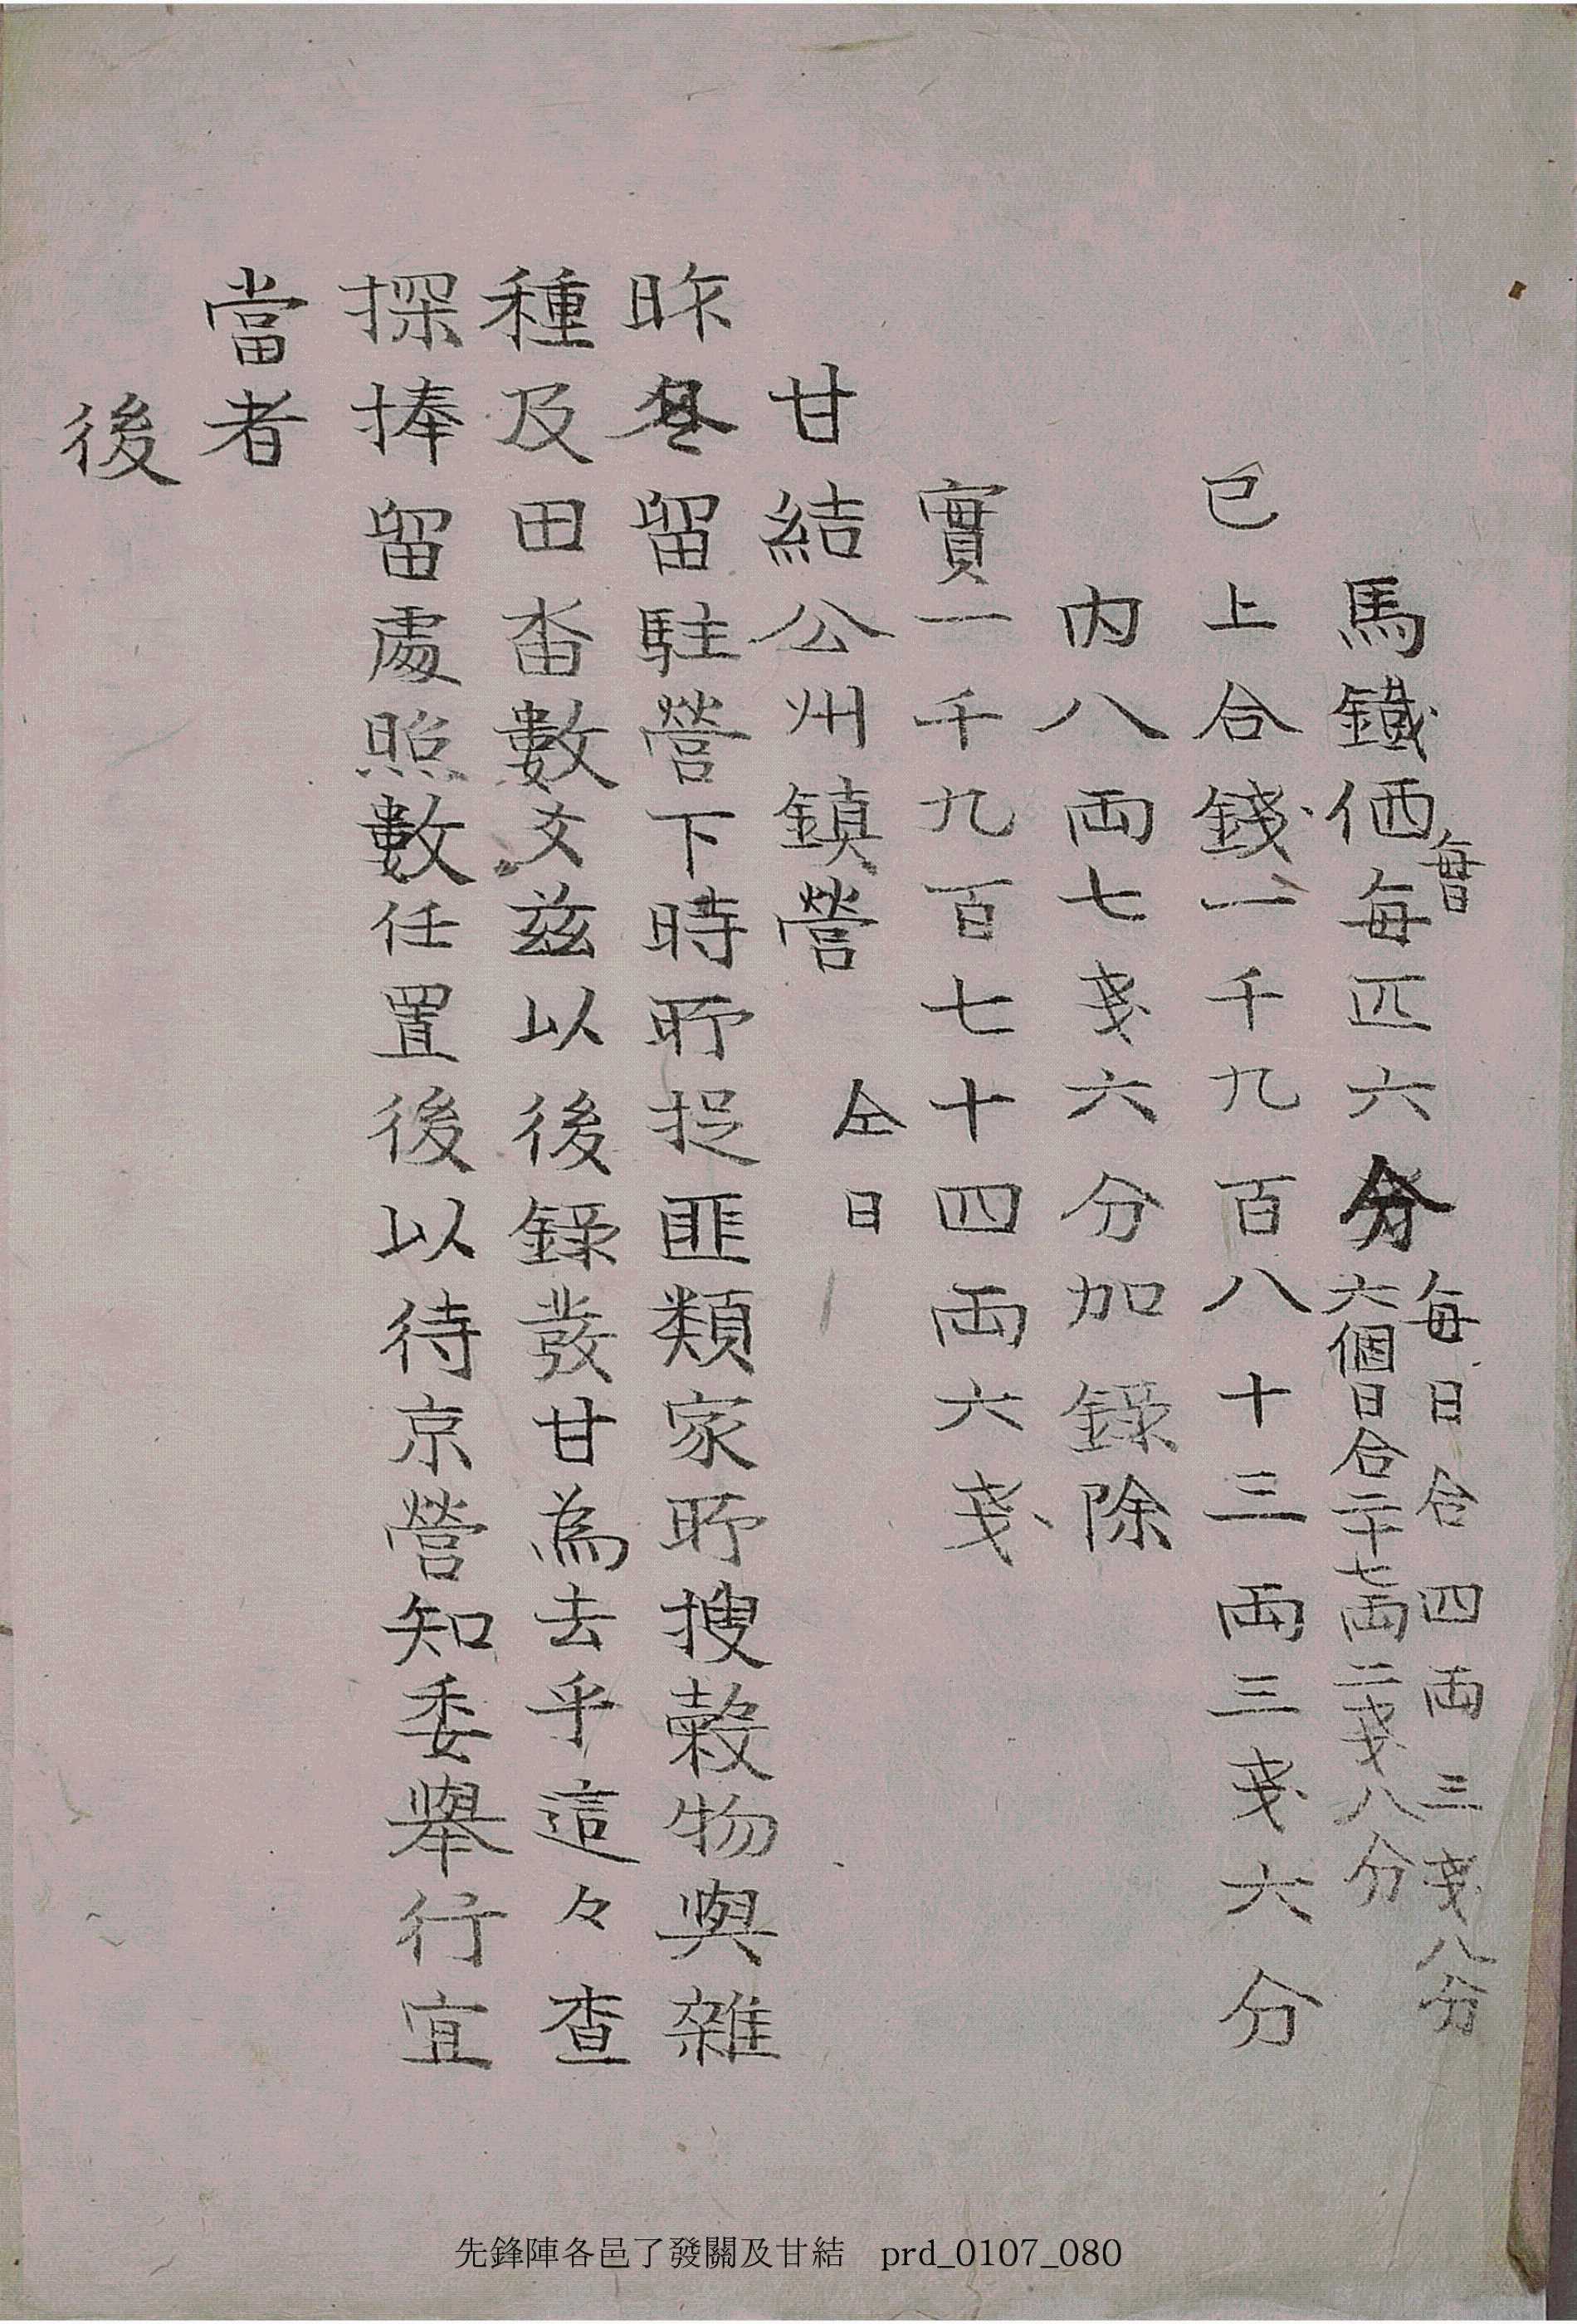 馬鐵価每匹六分 每日合四両三戔八分
每日
六個日合二十七両二戔八分
已上合錢一千九百八十三両三戔六分
內八両七戔六分加錄除
實一千九百七十四両六戔
甘結公州鎮營 仝日
昨冬留駐營下時所捉匪類家所搜穀物與雜
種及田畓數文玆以後錄發甘為去乎這々查
探捧留處照數任置後以待京營知委擧行宜
當者
後
先鋒陣各邑了發關及甘結 prd_0107_080